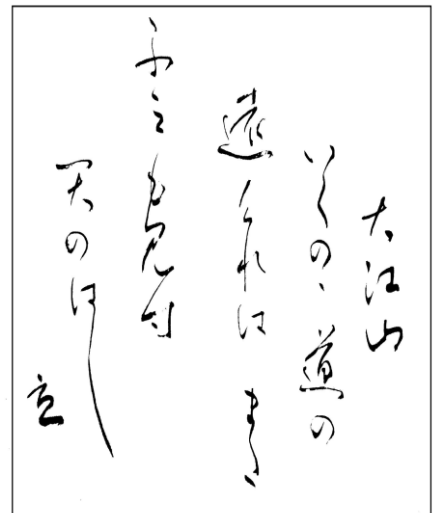 大江山
いくのゝ道の
遠けれはまた
ふみも見す
天のはし
立